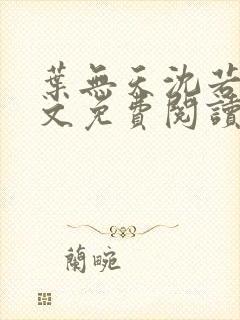 葉無天沈若
文免費閱讀
蘭晼